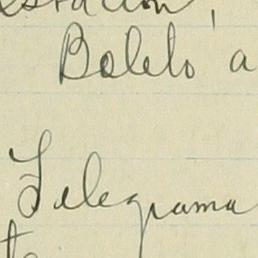 estación,
Boleto a
Telegrama
te